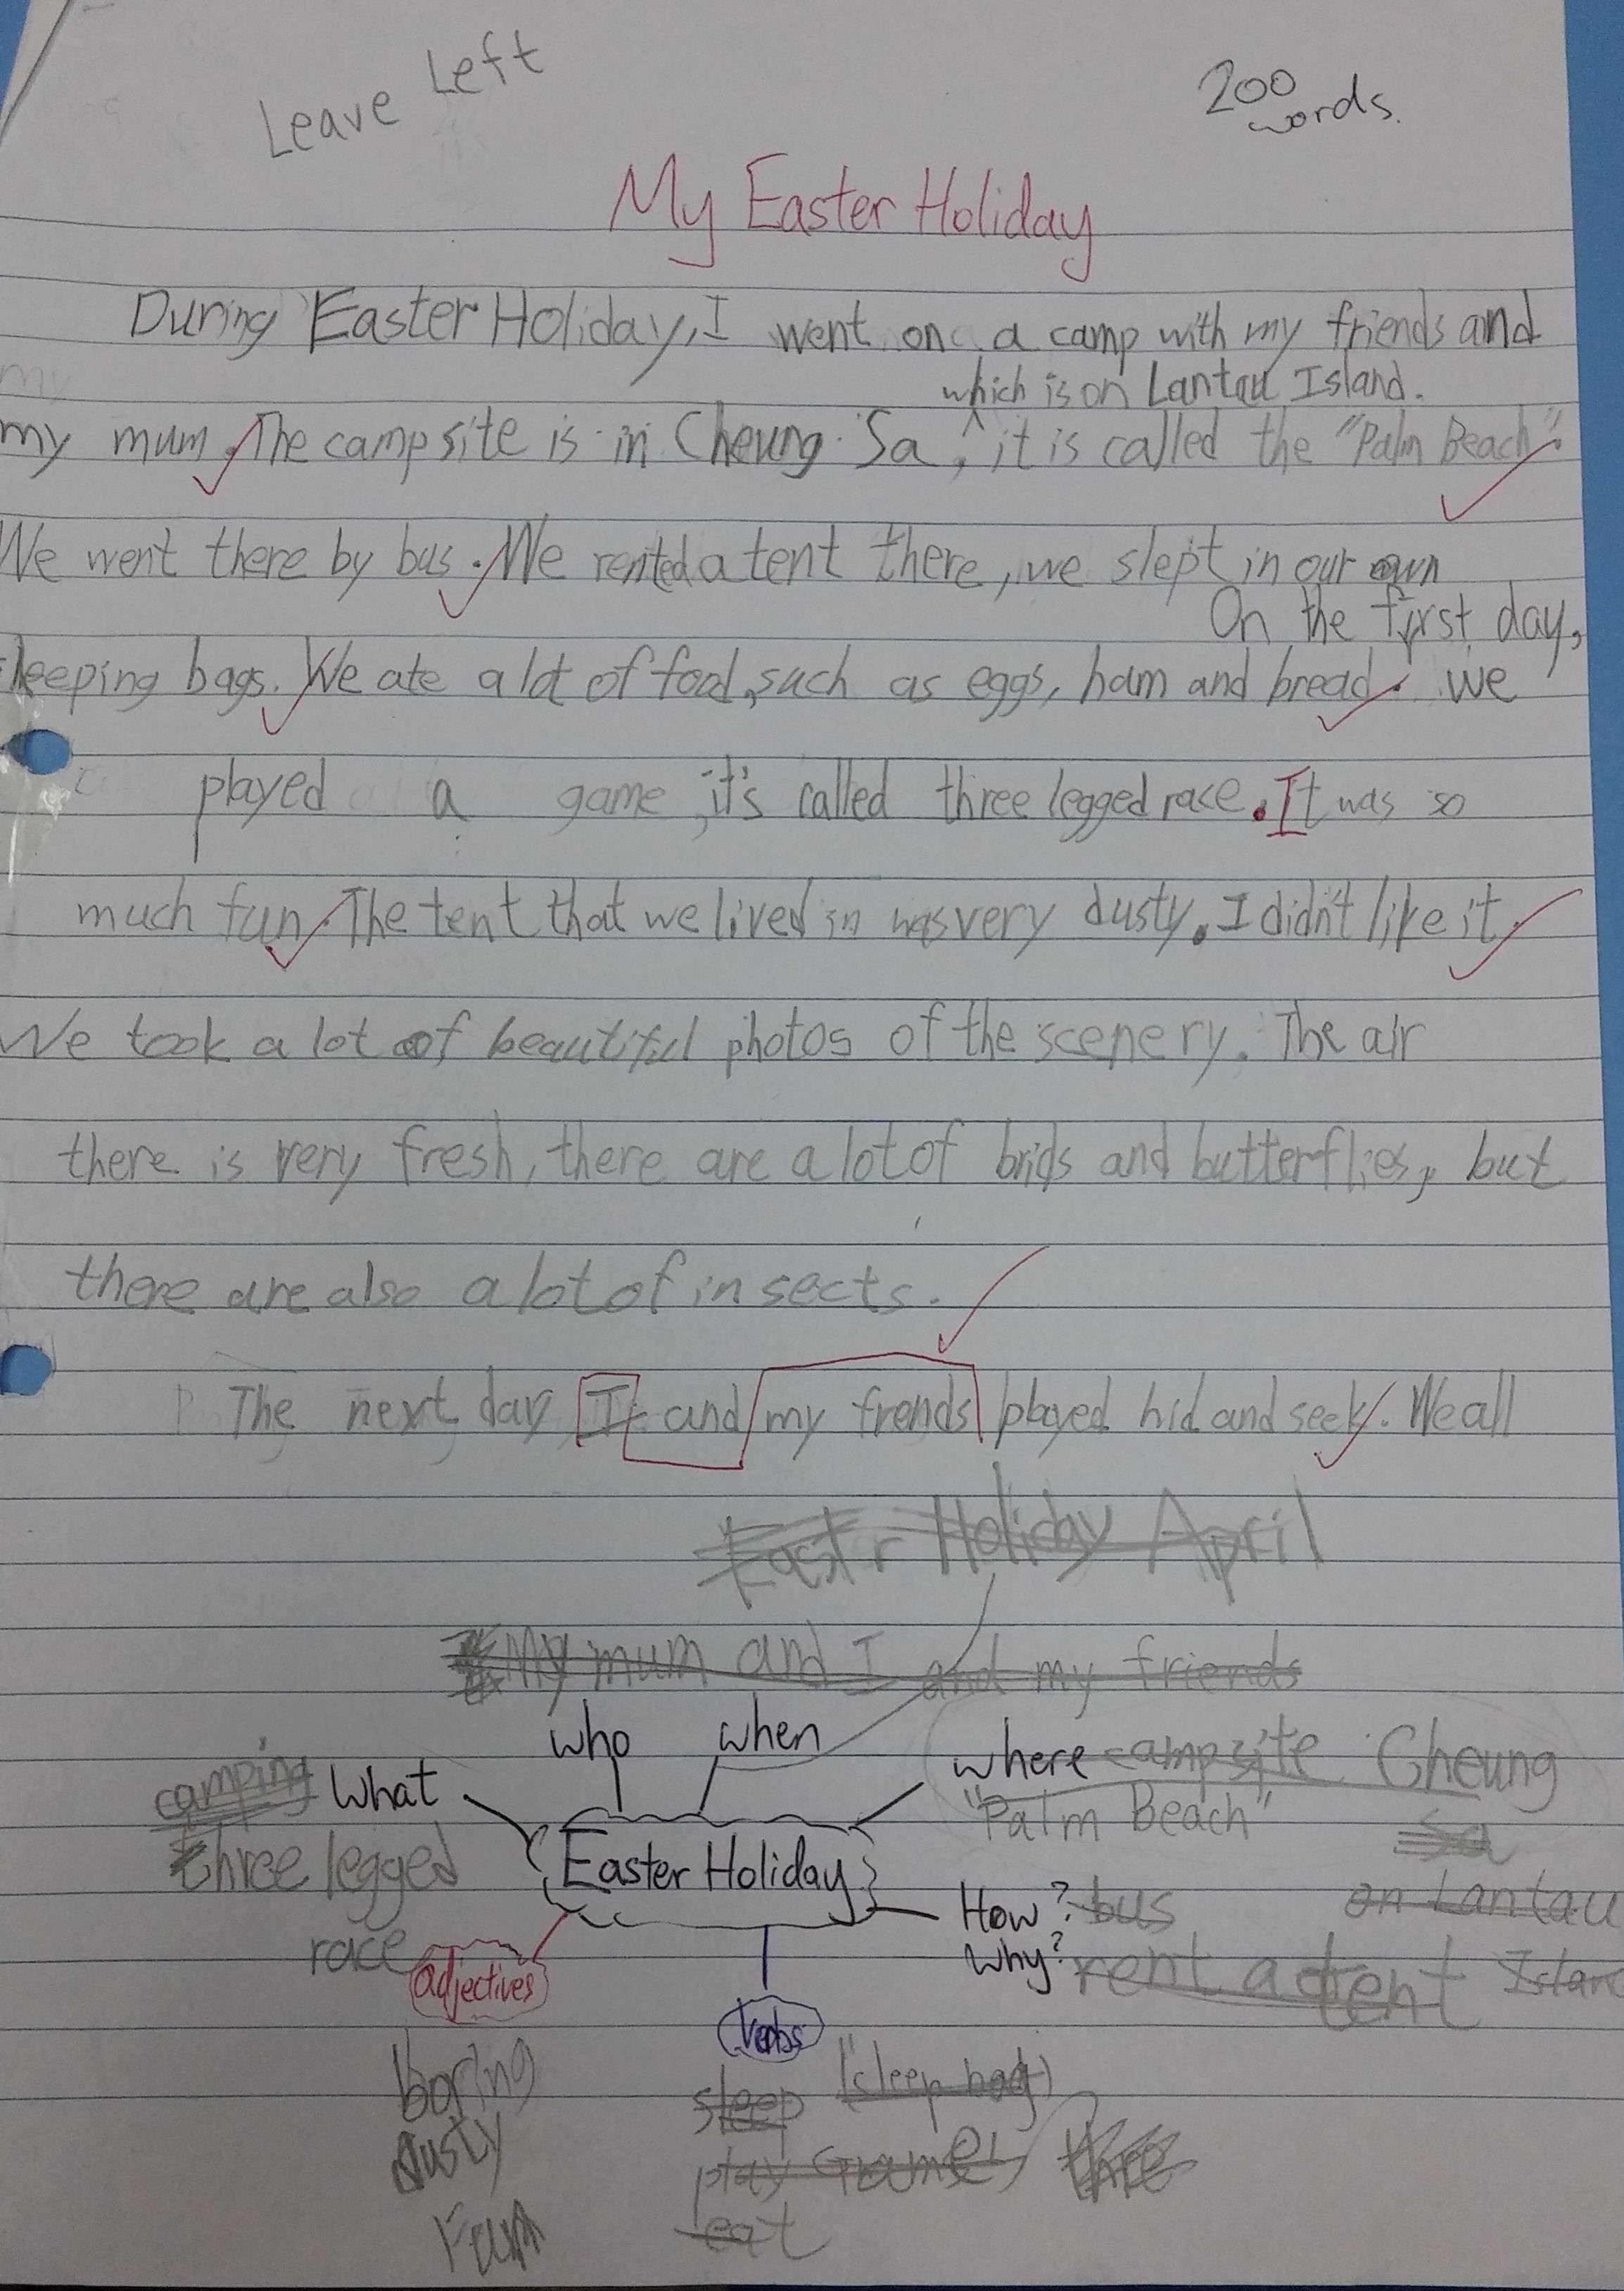 Leave Left
200
words.
My Easter Holiday
During Easter Holiday, I went on a camp with my friends and
which is on Lantau Island.
my mum. The campsite is in Cheung Sa, it is called the "Palm Beach".
We went there by bus. We rented a tent there, we slept in our own
On the first day,
sleeping bags. We ate a lot of food, such as eggs, ham and bread. we
played a game, it's called three legged race. It was so
much fun. The tent that we lived in was very dusty. I didn't like it.
We took a lot of beautiful photos of the scenery. The air
there is very fresh, there are a lot of brids and butterflies, but
there are also a lot of insects.
The next day I and my frends played hid and seek. We all
Easter Holiday April
My mum and I and my friends
who when
camping What
where campsite Cheung
"Palm Beach"
Sa
three legged
race
Easter Holiday
How? bus
on Lantau
Why? rent a tent Island
adjectives
Verbs
boring
dusty
Fun
sleep (sleep bag)
play Games three
eat